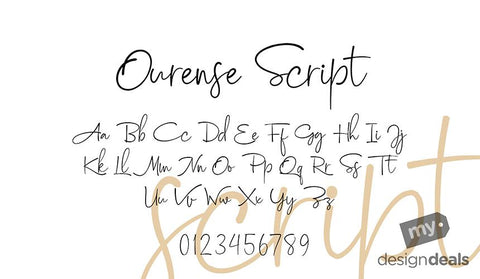 Ourense Script
Aa Bb Cc Dd Ee Ff Gg Hh Ii Jj
Kk Ll Mm Nn Oo Pp Qq Rr Ss Tt
Uu Vv Ww Xx Yy Zz
0123456789
script
my
designdeals